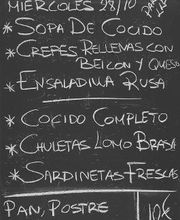 MIERCOLES 28/10
* SOPA DE COCIDO
* CREPES RELLENAS CON
BEICON Y QUESO
* ENSALADILLA RUSA
* COCIDO COMPLETO
* CHULETAS LOMO BRASA
* SARDINETAS FRESCAS
PAN, POSTRE
10€